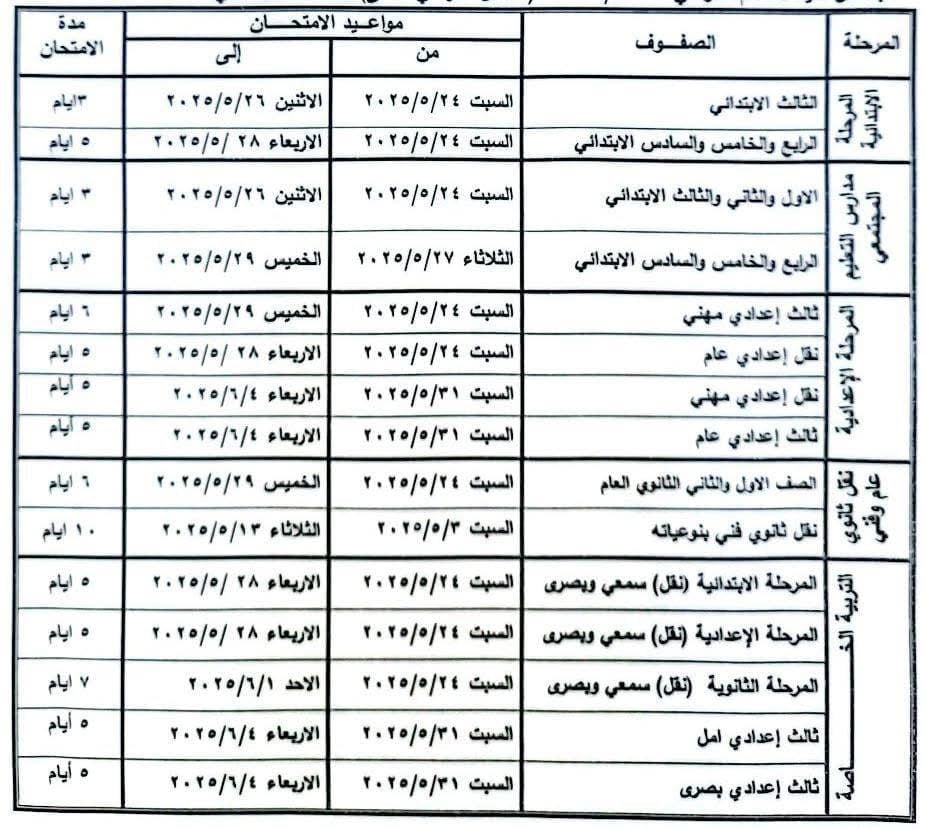 المرحلة الصفــوف مواعـيد الامتحــان مدة الامتحان
من إلى
المرحلة الابتدائية
الثالث الابتدائي السبت ٢٠٢٥/٥/٢٤ الاثنين ٢٠٢٥/٥/٢٦ ٣ايام
الرابع والخامس والسادس الابتدائي السبت ٢٠٢٥/٥/٢٤ الاربعاء ٢٨ /٢٠٢٥/٥ ٥ ايام
مدارس التعليم المجتمعي
الاول والثاني والثالث الابتدائي السبت ٢٠٢٥/٥/٢٤ الاثنين ٢٠٢٥/٥/٢٦ ٣ ايام
الرابع والخامس والسادس الابتدائي الثلاثاء ٢٠٢٥/٥/٢٧ الخميس ٢٠٢٥/٥/٢٩ ٣ ايام
المرحلة الإعدادية
ثالث إعدادي مهني السبت ٢٠٢٥/٥/٢٤ الخميس ٢٠٢٥/٥/٢٩ ٦ ايام
نقل إعدادي عام السبت ٢٠٢٥/٥/٢٤ الاربعاء ٢٨ /٢٠٢٥/٥ ٥ ايام
نقل إعدادي مهني السبت ٢٠٢٥/٥/٣١ الاربعاء ٢٠٢٥/٦/٤ ٥ أيام
ثالث إعدادي عام السبت ٢٠٢٥/٥/٣١ الاربعاء ٢٠٢٥/٦/٤ ٥ أيام
نقل ثانوي عام وفني
الصف الاول والثاني الثانوي العام السبت ٢٠٢٥/٥/٢٤ الخميس ٢٠٢٥/٥/٢٩ ٦ ايام
نقل ثانوي فني بنوعياته السبت ٢٠٢٥/٥/٣ الثلاثاء ٢٠٢٥/٥/١٣ ١٠ ايام
التربية الخـــــاصة
المرحلة الابتدائية (نقل) سمعي وبصرى السبت ٢٠٢٥/٥/٢٤ الاربعاء ٢٨ /٢٠٢٥/٥ ٥ ايام
المرحلة الإعدادية (نقل) سمعي وبصرى السبت ٢٠٢٥/٥/٢٤ الاربعاء ٢٨ /٢٠٢٥/٥ ٥ ايام
المرحلة الثانوية (نقل) سمعي وبصرى السبت ٢٠٢٥/٥/٢٤ الاحد ٢٠٢٥/٦/١ ٧ ايام
ثالث إعدادي امل السبت ٢٠٢٥/٥/٣١ الاربعاء ٢٠٢٥/٦/٤ ٥ أيام
ثالث إعدادي بصرى السبت ٢٠٢٥/٥/٣١ الاربعاء ٢٠٢٥/٦/٤ ٥ أيام